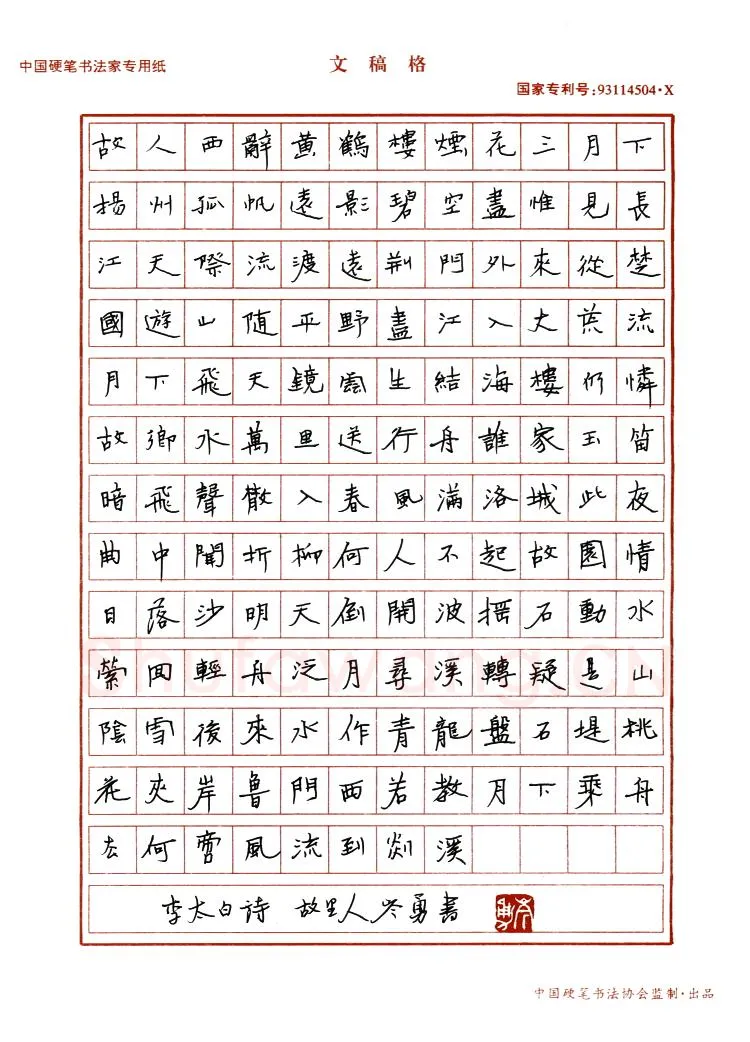 中国硬笔书法家专用纸
文稿格
国家专利号:93114504·X
故人西辭黃鶴樓煙花三月下
揚州孤帆遠影碧空盡惟見長
江天際流渡遠荆門外來從楚
國遊山隨平野盡江入大荒流
月下飛天鏡雲生結海樓仍憐
故鄉水萬里送行舟誰家玉笛
暗飛聲散入春風滿洛城此夜
曲中聞折柳何人不起故園情
日落沙明天倒開波搖石動水
縈回輕舟泛月尋溪轉疑是山
陰雪後來水作青龍盤石堤桃
花夾岸魯門西若教月下乘舟
去何啻風流到剡溪
李太白诗 故里人岑勇書
中国硬笔书法协会监制·出品